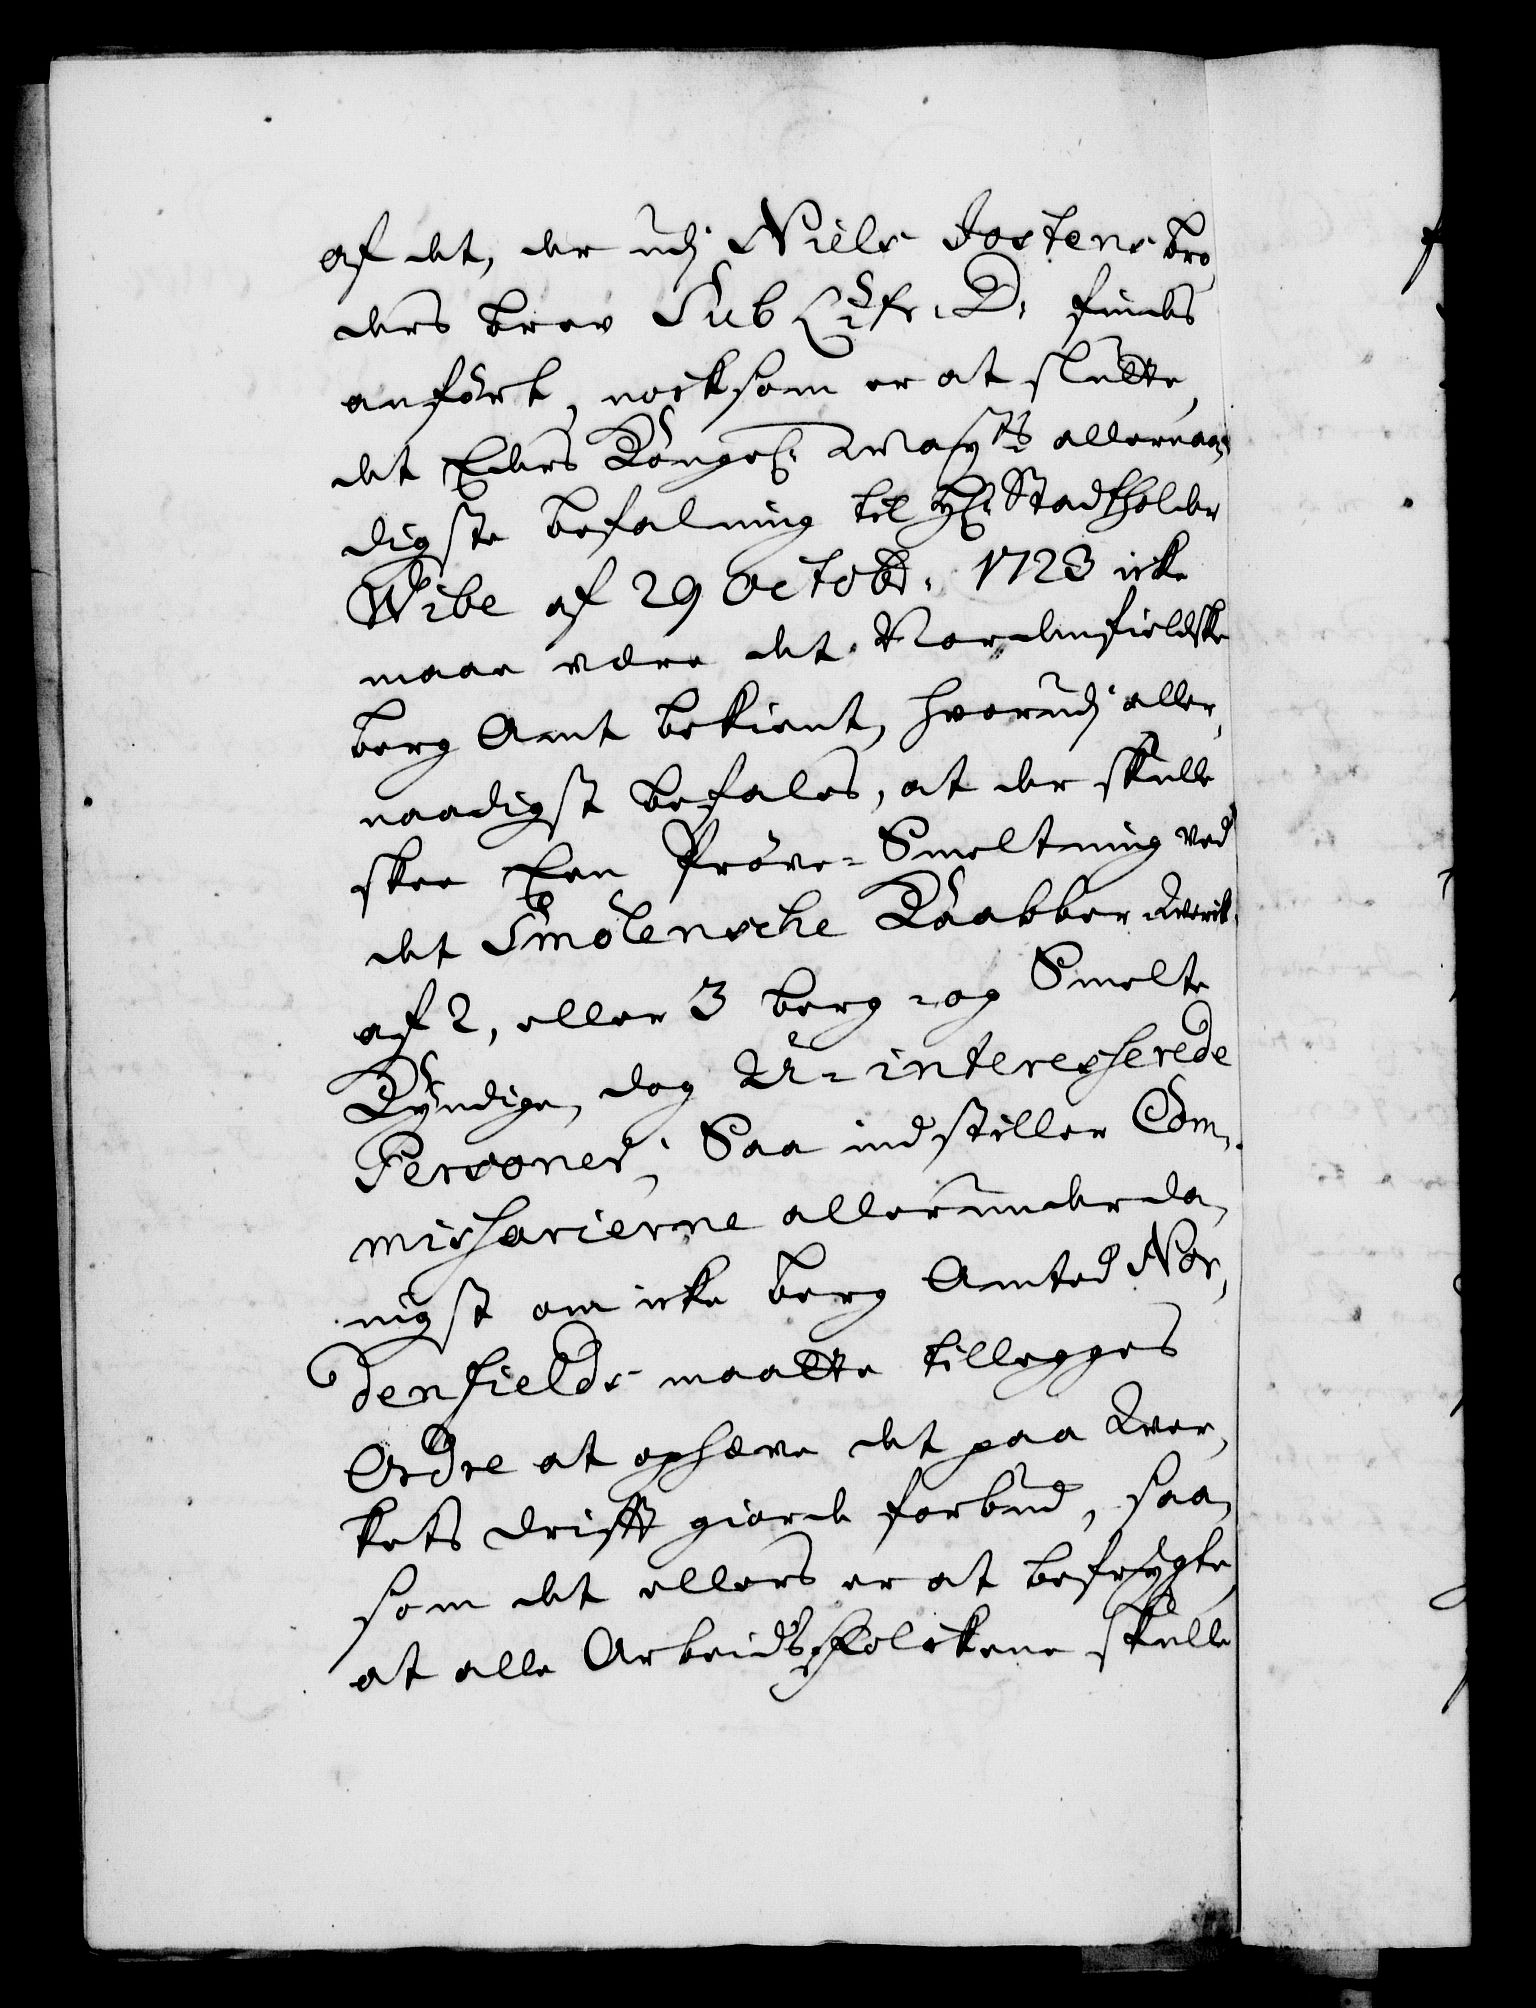 af det, der udj Niels Jostens bro,
ders brev Sub Litr. D. findes
anført, nocksom er at slutte,
det Eders Kongel. Mayts allernaa,
digste befalning til Hr. Stadtholder
Wibe af 29 Octobr. 1723 icke
maae være det Nordenfieldske
berg Amt bekient, hvorudj aller,
naadigst befales, at der skulle
skee Een Prøve-Smeltning ved
det Smölensche Kaabber Werck.
af 2, eller 3 berg- og Smelte
Kyndige, dog U-interesserede
Personer; Saa indstiller Com,
missarierne allerunderda,
nigst om icke berg Amted Nor,
denfields maatte tillegges
Ordre at ophæve det paa Wer,
kets drifft giorde forbud, saa,
som det ellers er at befrygte,
at alle Arbeids-folckene skulle